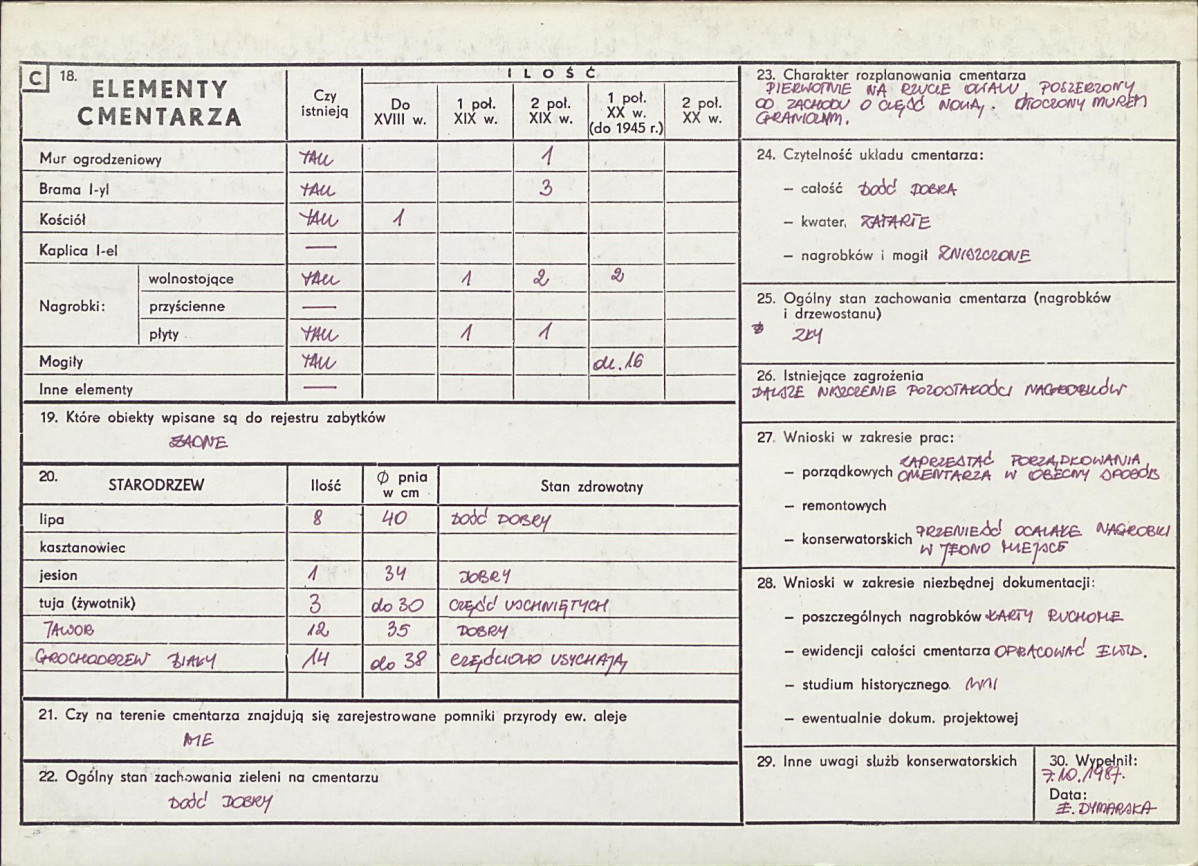 C 18. ELEMENTY CMENTARZA
Czy istnieją
ILOŚĆ
Do XVIII w.
1 poł. XIX w.
2 poł. XIX w.
1 poł. XX w. (do 1945 r.)
2 poł. XX w.
Mur ogrodzeniowy TAK 1
Brama I-yl TAK 3
Kościół TAK 1
Kaplica I-el —
Nagrobki:
wolnostojące TAK 1 2 2
przyścienne —
płyty TAK 1 1
Mogiły TAK ok. 16
Inne elementy —
19. Które obiekty wpisane są do rejestru zabytków
ŻADNE
20. STARODRZEW Ilość Ø pnia w cm Stan zdrowotny
lipa 8 40 DOŚĆ DOBRY
kasztanowiec
jesion 1 34 DOBRY
tuja (żywotnik) 3 do 30 CZĘŚĆ USCHNIĘTYCH
JAWOR 12 35 DOBRY
GROCHODRZEW BIAŁY 14 do 38 CZĘŚCIOWO USYCHAJĄ
21. Czy na terenie cmentarza znajdują się zarejestrowane pomniki przyrody ew. aleje
NIE
22. Ogólny stan zachowania zieleni na cmentarzu
DOŚĆ DOBRY
23. Charakter rozplanowania cmentarza
PIERWOTNIE NA RZUCIE OWALU, POSZERZONY
OD ZACHODU O CZĘŚĆ NOWĄ. OTOCZONY MUREM
GRANICZNYM.
24. Czytelność układu cmentarza:
– całość DOŚĆ DOBRA
– kwater, ZATARTE
– nagrobków i mogił ZNISZCZONE
25. Ogólny stan zachowania cmentarza (nagrobków
i drzewostanu)
ZŁY
26. Istniejące zagrożenia
DALSZE NISZCZENIE POZOSTAŁOŚCI NAGROBKÓW
27. Wnioski w zakresie prac:
– porządkowych ZAPRZESTAĆ PORZĄDKOWANIA
CMENTARZA W OBECNY SPOSÓB
– remontowych
– konserwatorskich PRZENIEŚĆ OCALAŁE NAGROBKI
W JEDNO MIEJSCE
28. Wnioski w zakresie niezbędnej dokumentacji:
– poszczególnych nagrobków KARTY RUCHOME
– ewidencji całości cmentarza OPRACOWAĆ EWID.
– studium historycznego
– ewentualnie dokum. projektowej
29. Inne uwagi służb konserwatorskich
30. Wypełnił:
7.10.1987.
Data:
E. DYMARSKA